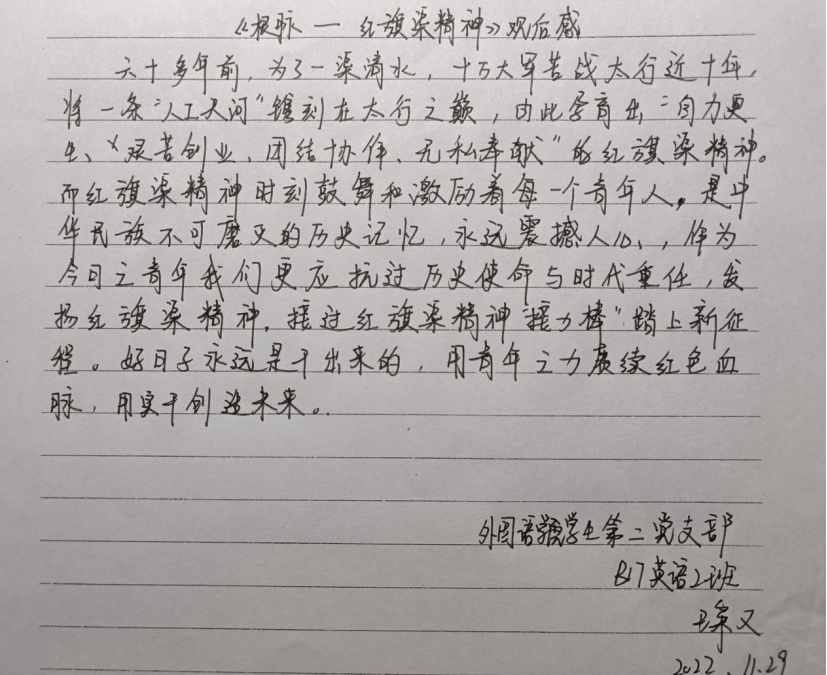 《根脉一红旗渠精神》观后感
六十多年前,为了一渠清水,十万大军苦战太行近十年,
将一条"人工天河"镌刻在太行之巅,由此孕育出"自力更
生、艰苦创业、团结协作、无私奉献"的红旗渠精神。
而红旗渠精神时刻鼓舞和激励着每一个青年人。是中
华民族不可磨灭的历史记忆,永远震撼人心,作为
今日之青年我们更应抗过历史使命与时代重任,发
扬红旗渠精神,接过红旗渠精神"接力棒"踏上新征
程。好日子永远是干出来的,用青年之力赓续红色血
脉,用实干创造未来。
外国语学院学生第二党支部
B17英语2班
2022.11.29